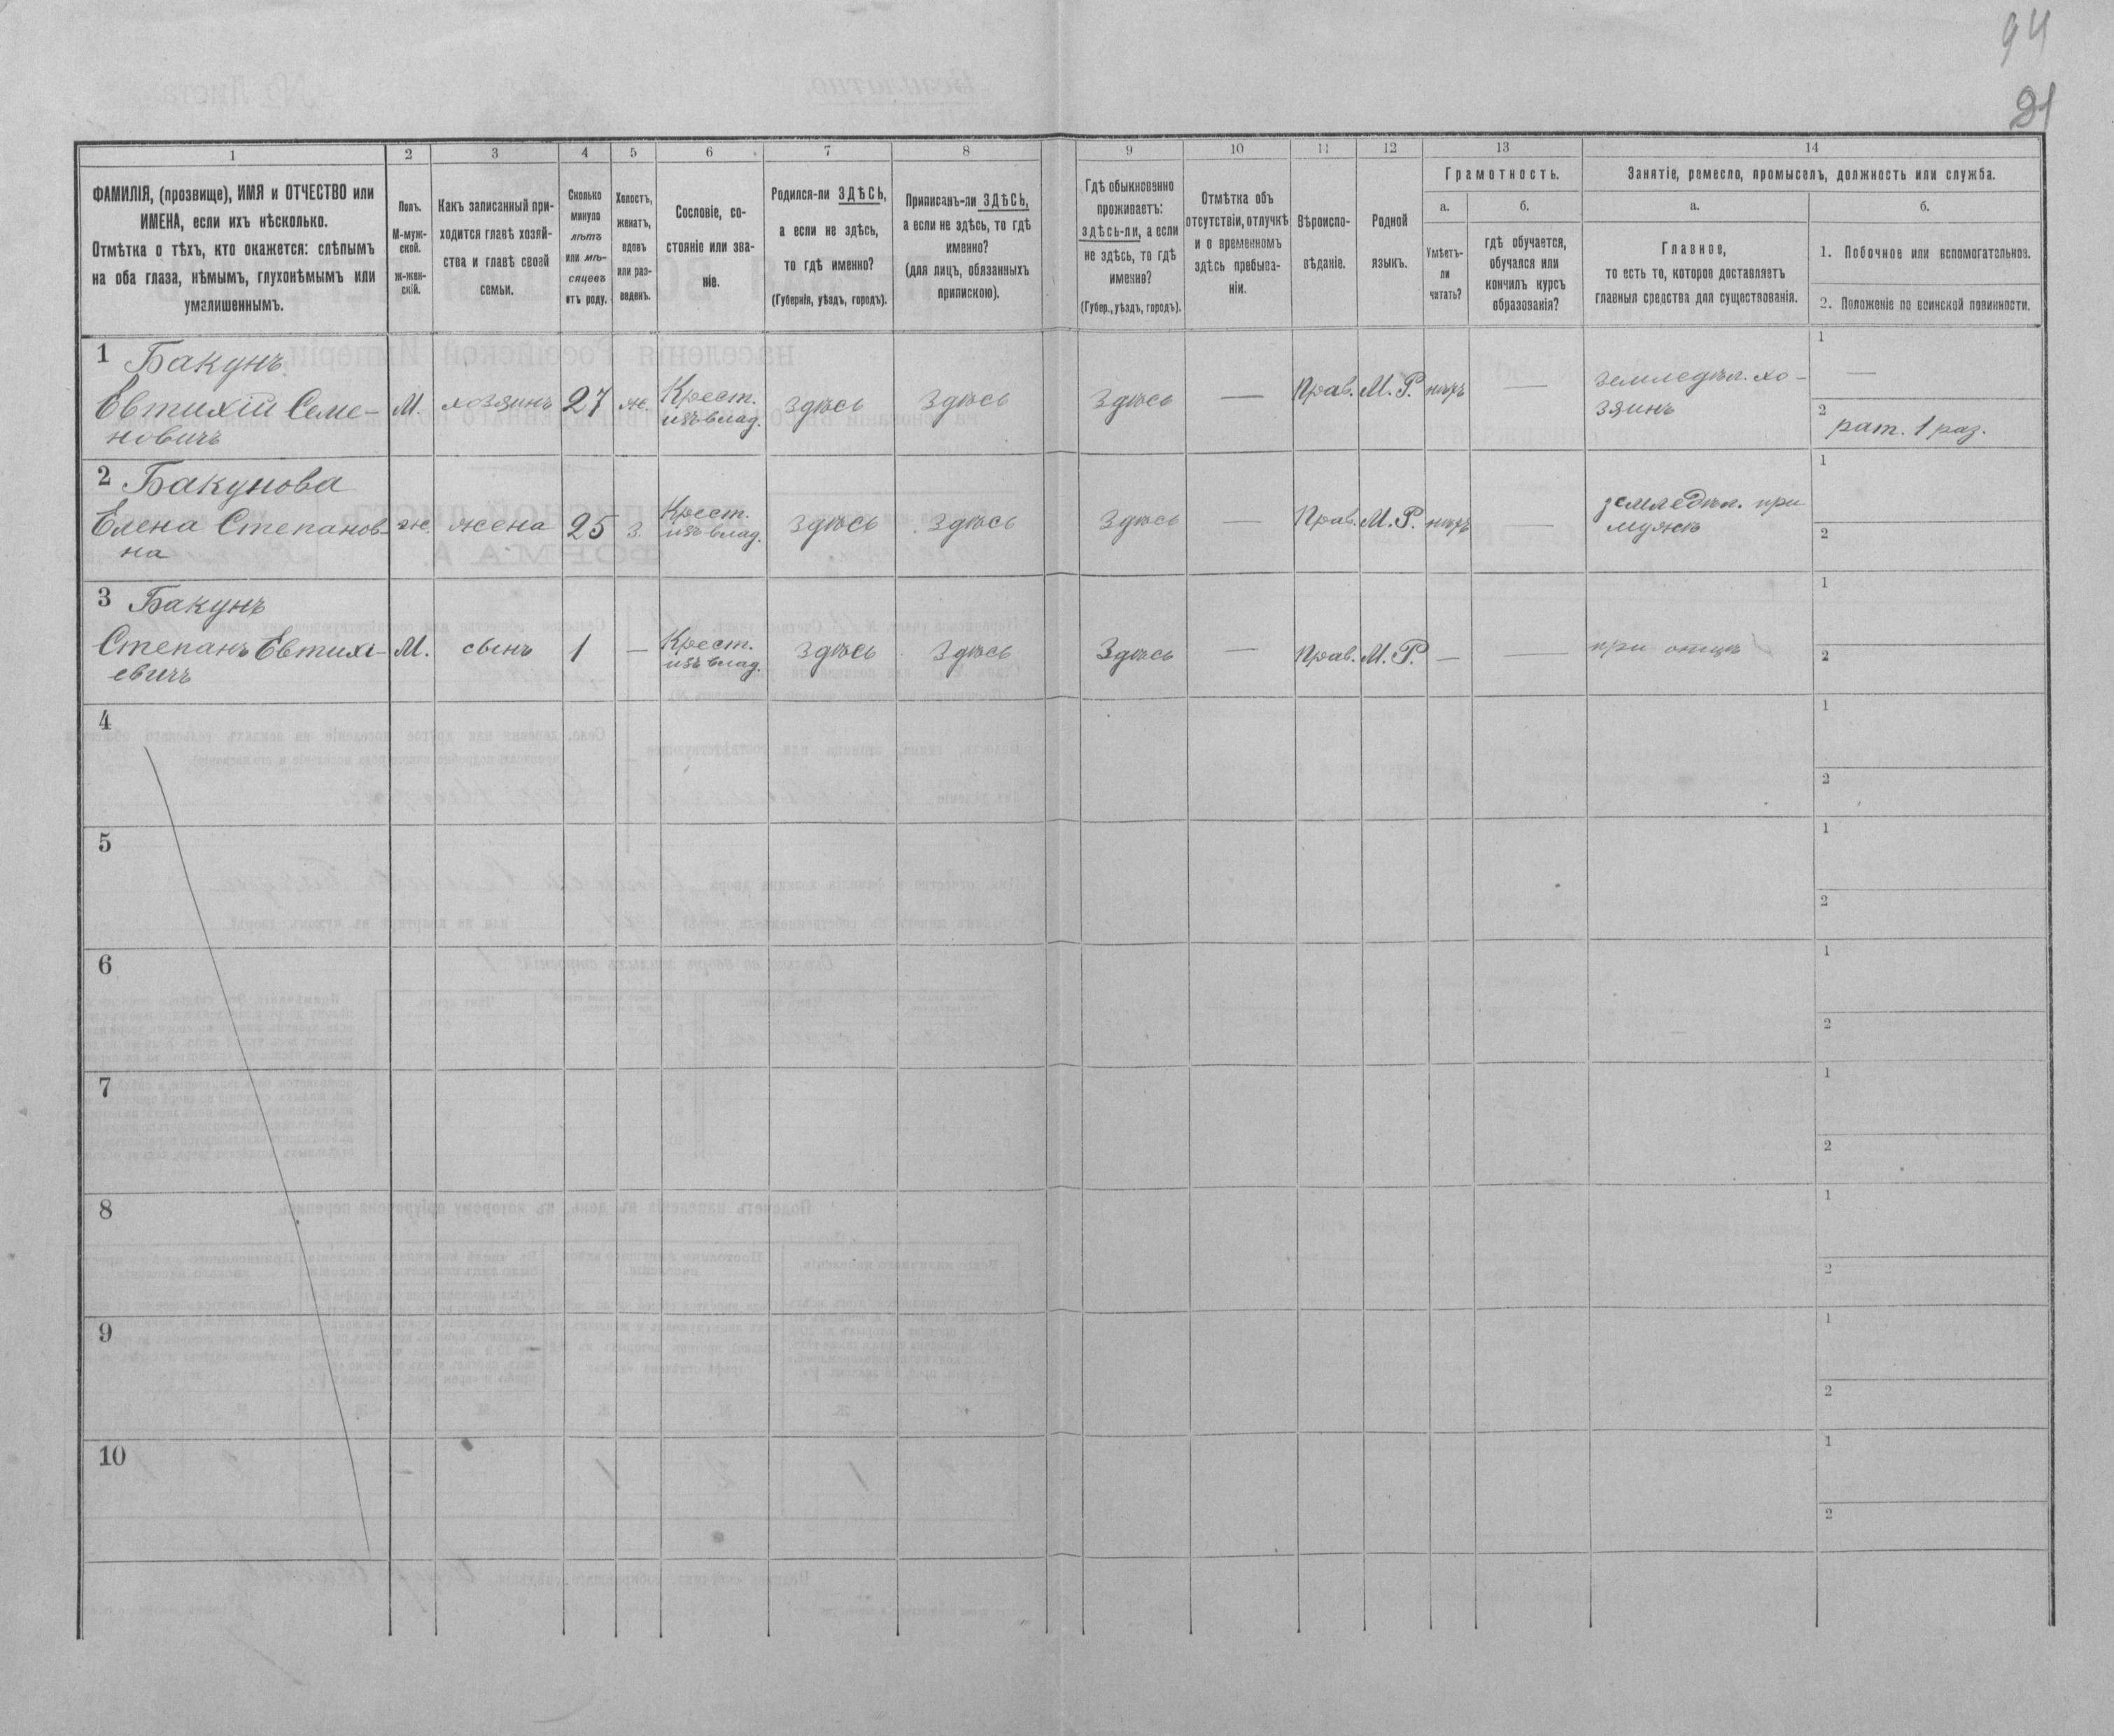 94
91
1
2
3
4
5
6
7
8
9
10
11
12
13
14
ФАМИЛІЯ, (прозвище), ИМЯ и ОТЧЕСТВО или
ИМЕНА, если ихъ нѣсколько.
Отмѣтка о тѣхъ, кто окажется: слѣпымъ
на оба глаза, нѣмымъ, глухонѣмымъ или
умалишеннымъ.
Полъ.
М-муж-
ской.
ж-жен-
скій.
Какъ записанный при-
ходится главѣ хозяй-
ства и главѣ своей
семьи.
Сколько
минуло
лѣтъ
или мѣ-
сяцевъ
отъ роду.
Холостъ,
женатъ,
вдовъ
или раз-
веденъ.
Сословіе, со-
стояніе или зва-
ніе.
Родился-ли ЗДѢСЬ,
а если не здѣсь,
то гдѣ именно?
(Губернія, уѣздъ, городъ).
Приписанъ-ли ЗДѢСЬ,
а если не здѣсь, то гдѣ
именно?
(для лицъ, обязанныхъ
припискою).
Гдѣ обыкновенно
проживаетъ:
здѣсь-ли, а если
не здѣсь, то гдѣ
именно?
(Губер., уѣздъ, городъ).
Отмѣтка объ
отсутствіи, отлучкѣ
и о временномъ
здѣсь пребыва-
ніи.
Вѣроиспо-
вѣданіе.
Родной
языкъ.
Грамотность.
а.
Умѣетъ-
ли
читать?
б.
гдѣ обучается,
обучался или
кончилъ курсъ
образованія?
Занятіе, ремесло, промыселъ, должность или служба.
а.
Главное,
то есть то, которое доставляетъ
главныя средства для существованія.
б.
1. Побочное или вспомогательное.
2. Положеніе по воинской повинности.
1 Бакунъ
Евтихій Семе-
новичъ
М.
хозяинъ
27
ж.
Крест.
изъ влад.
Здѣсь
Здѣсь
Здѣсь
—
Прав.
М. Р.
нѣтъ
—
земледѣл. хо-
зяинъ
1
—
2
рат. 1 раз.
2 Бакунова
Елена Степанов-
на
ж.
жена
25
з.
Крест.
изъ влад.
Здѣсь
Здѣсь
Здѣсь
—
Прав.
М. Р.
нѣтъ
—
земледѣл. при
мужѣ
1
2
3 Бакунъ
Степанъ Евтихі-
евичъ
М.
сынъ
1
—
Крест.
изъ влад.
Здѣсь
Здѣсь
Здѣсь
—
Прав.
М. Р.
—
—
при отцѣ
1
2
4
1
2
5
1
2
6
1
2
7
1
2
8
1
2
9
1
2
10
1
2